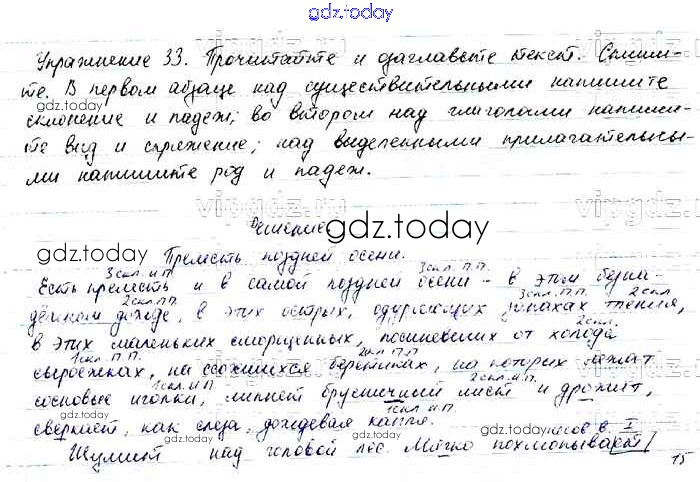 gdz.today
Упражнение 33. Прочитайте и озаглавьте текст. Спиши-
те. В первом абзаце над существительными напишите
gdz.today
склонение и падеж; во втором над глаголами напиши-
те вид и спряжение; над выделенными прилагательны-
ми напишите род и падеж.
vipgdz.ru
Решение
gdz.today
gdz.today
Прелесть поздней осени.
3скл. И.П. 3скл. П.П.
Есть прелесть и в самой поздней осени - в этом безна-
2скл. П.П. 3скл. П.П. 2скл
дёжном дожде, в этих острых, одуряющих запахах тления,
2скл.
в этих маленьких сморщенных, посиневших от холода
1скл. П.П. 2скл П.П
сыроежках, на ссохшихся берётиках, на которых лежат
1скл. И.П. 2скл. И.П.
сосновые иголки, липнет брусничный лист и дрожит,
gdz.today
1скл И.П.
сверкает, как слеза, дождевая капля.
gdz.today
несов в. I
Шумит над головой лес. Мягко похлопывает
15